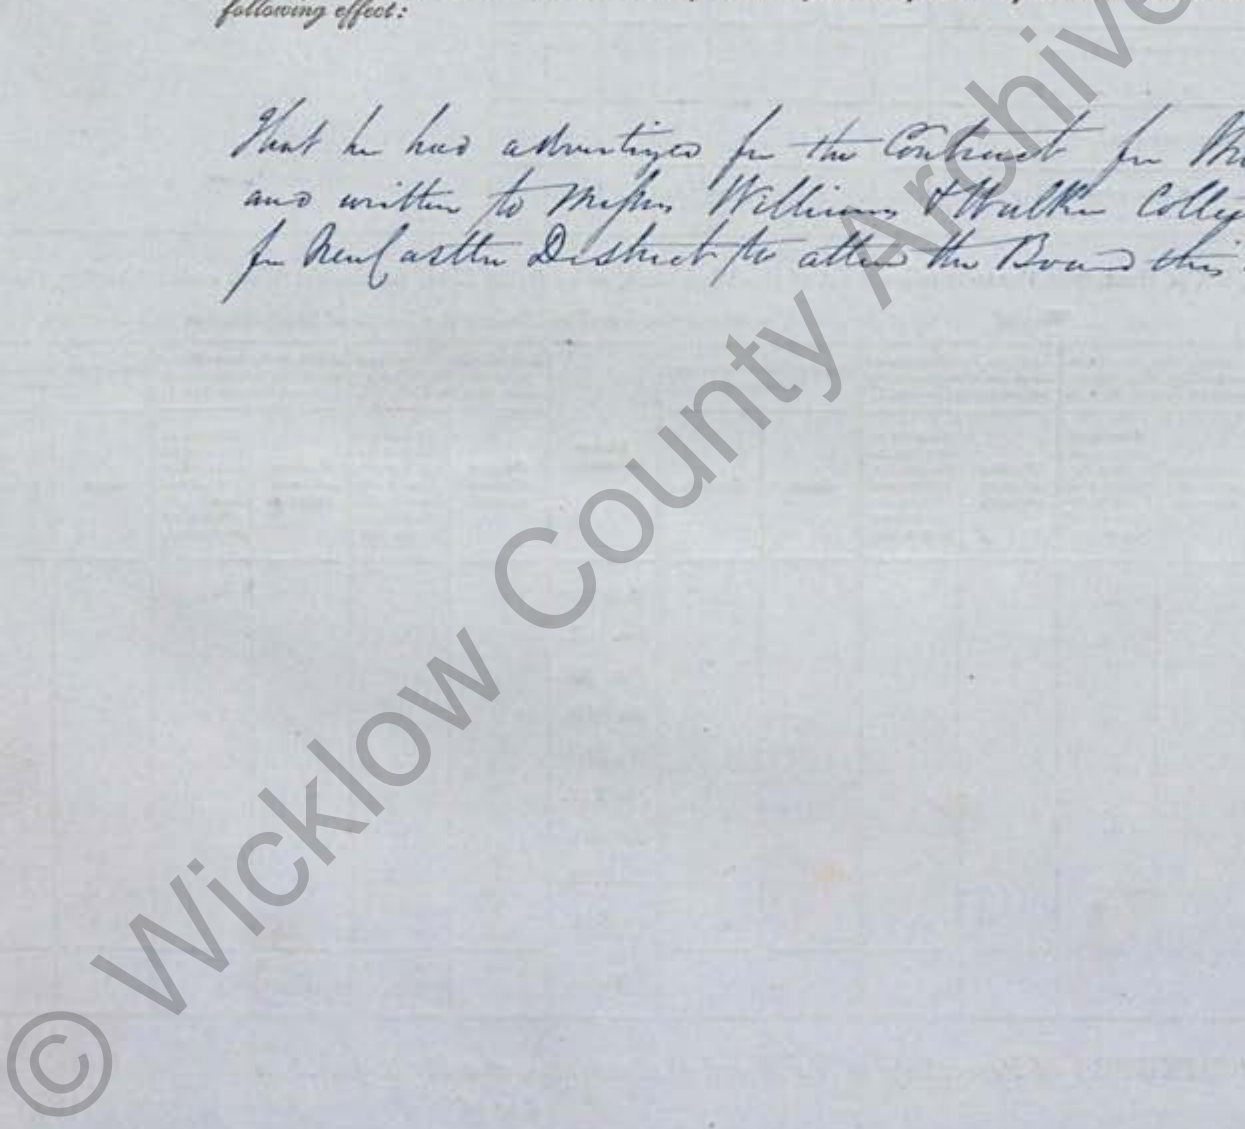 following effect:
That he had advertized for the Contract for
and written to Messrs Williams & Walker
for NewCastle District to attend the Board this
© Wicklow County Archive